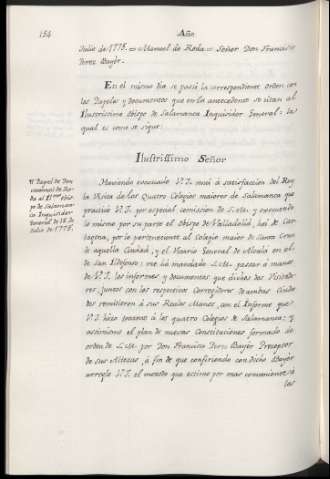 154
Año
Julio de 1775. = Manuel de Roda. = Señor Don Francisco
Perez Bayer.
En el mismo dia se pasó la correspondiente orden con
los Papeles y documentos que en los antecedentes se citan al
Ilustrisimo Obispo de Salamanca Inquisidor General: la
qual es como se sigue:
Ilustrissimo Señor
Papel de Don
Manuel de Ro-
da al Ilmo. Obis-
po de Salaman-
ca Inquisidor
General de 18 de
Julio de 1775.
Haviendo evacuado V.I. mui á satisfaccion del Rey
la Visita de los Quatro Colegios maiores de Salamanca que
practicó V.I. por especial comision de S.M.; y executado
lo mismo por su parte el Obispo de Valladolid, hoi de Car-
tagena, por lo perteneciente al Colegio maior de Santa Cruz
de aquella Ciudad; y el Vicario General de Alcalá en el
de San Ildefonso: me há mandado S.M. pasar á manos
de V.I. los informes y documentos que dichos dos Visitado-
res juntos con los respectivos Corregidores de ambas Ciuda-
des remitieron á sus Reales Manos, con el Informe que
V.I. hizo tocante á los quatro Colegios de Salamanca; y
assimismo el plan de nuevas Constituciones formado de
orden de S.M. por Don Francisco Perez Bayer Preceptor
de sus Altezas, á fin de que confiriendo con dicho Bayer
arregle V.I. el metodo que estime por mas conveniente á
las